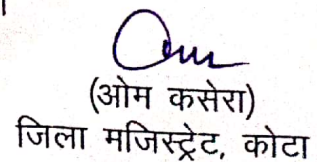 (ओम कसेरा)
जिला मजिस्ट्रेट, कोटा